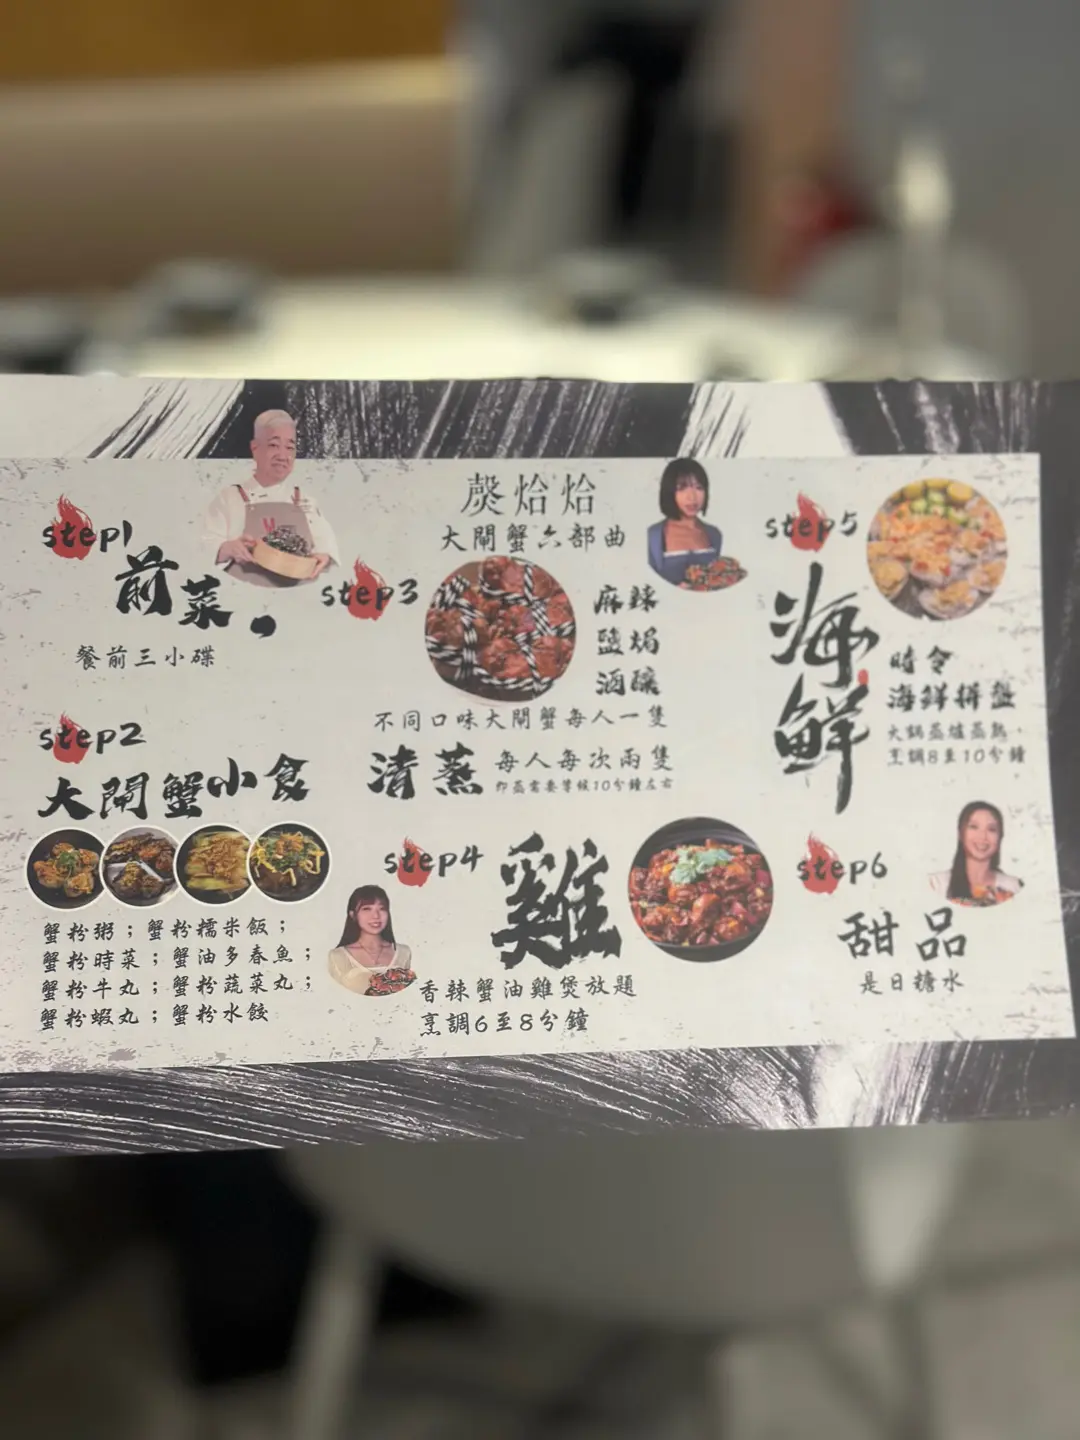 step1
前菜
餐前三小碟
step2
大閘蟹小食
蟹粉粥；蟹粉糯米飯；
蟹粉時菜；蟹油多春魚；
蟹粉牛丸；蟹粉蔬菜丸；
蟹粉蝦丸；蟹粉水餃
烚烚
大閘蟹六部曲
step3
麻辣
鹽焗
酒釀
不同口味大閘蟹每人一隻
清蒸
每人每次兩隻
即蒸需要等候10分鐘左右
step4
雞
香辣蟹油雞煲放題
烹調6至8分鐘
step5
海鮮
時令
海鮮拼盤
火鍋蒸爐蒸熟，
烹調8至10分鐘
step6
甜品
是日糖水